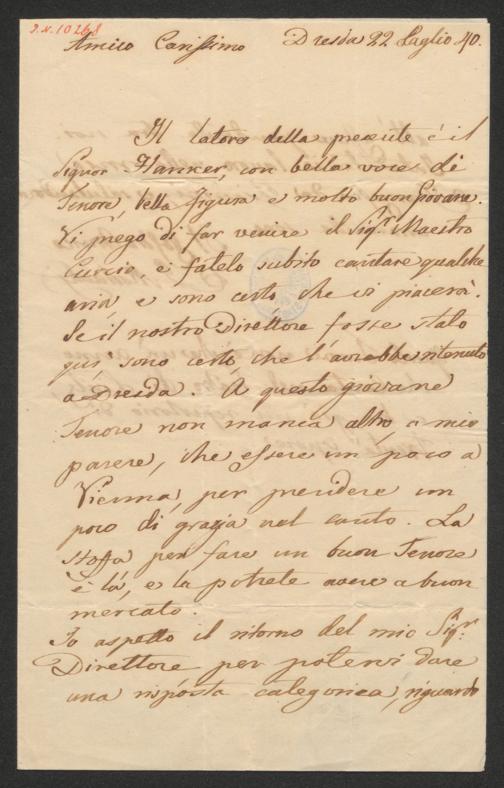 I.N. 10268
Amico Carissimo Dresda 22 Luglio 40.
Il latore della presente é il
Signor Hanner, con bella voce di
Tenore, bella figura e molto buon Giovane.
Vi prego di far venire il Sigr. Maestro
Curcio, e fatelo subito cantare qualche
aria, e sono certo, che vi piacerà.
Se il nostro Direttore fosse stato
qui, sono certo, che l'avrebbe ritenuto
a Dresda. A questo giovane
Tenore non manca altro, a mio
parere, che essere un poco a
Vienna, per prendere un
poco di grazia nel canto. La
stoffa per fare un buon Tenore
è là, e la potrete avere a buon
mercato.
Io aspetto il ritorno del mio Sigr.
Direttore per potervi dare
una risposta categorica, riguardo